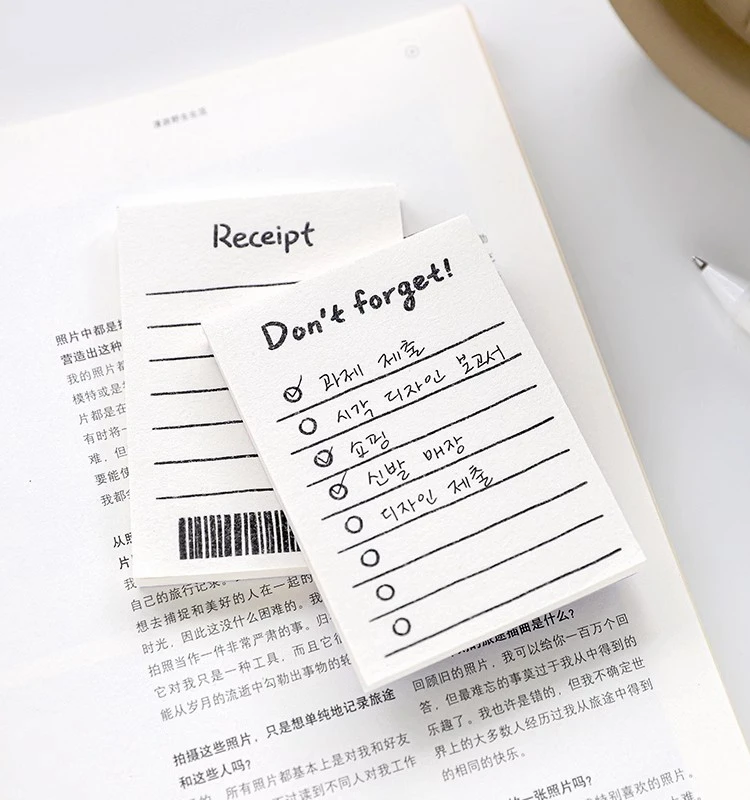 Receipt
Don't forget!
과제 제출
시각 디자인 보고서
쇼핑
신발 매장
디자인 제출
照片中都是
营造出这种
我的照片都
模特或是
片都是在
有时将一
难，但
要能使
我都
从照
片
我
自己的旅行记录。
想去捕捉和美好的人在一起的
时光，因此这没什么困难的。我
拍照当作一件非常严肃的事。归
它对我只是一种工具，而且它
能从岁月的流逝中勾勒出事物的轮
拍摄这些照片，只是想单纯地记录旅途
和这些人吗？
所有照片都基本上是对我和好友
读到不同人对我工作
的旅途插曲是什么？
回顾旧的照片，我可以给你一百万个回
答，但最难忘的事莫过于我从中得到的
乐趣了。我也许是错的，但我不确定世
界上的大多数人经历过我从旅途中得到
的相同的快乐。
一张照片吗？
特别喜欢的照片。